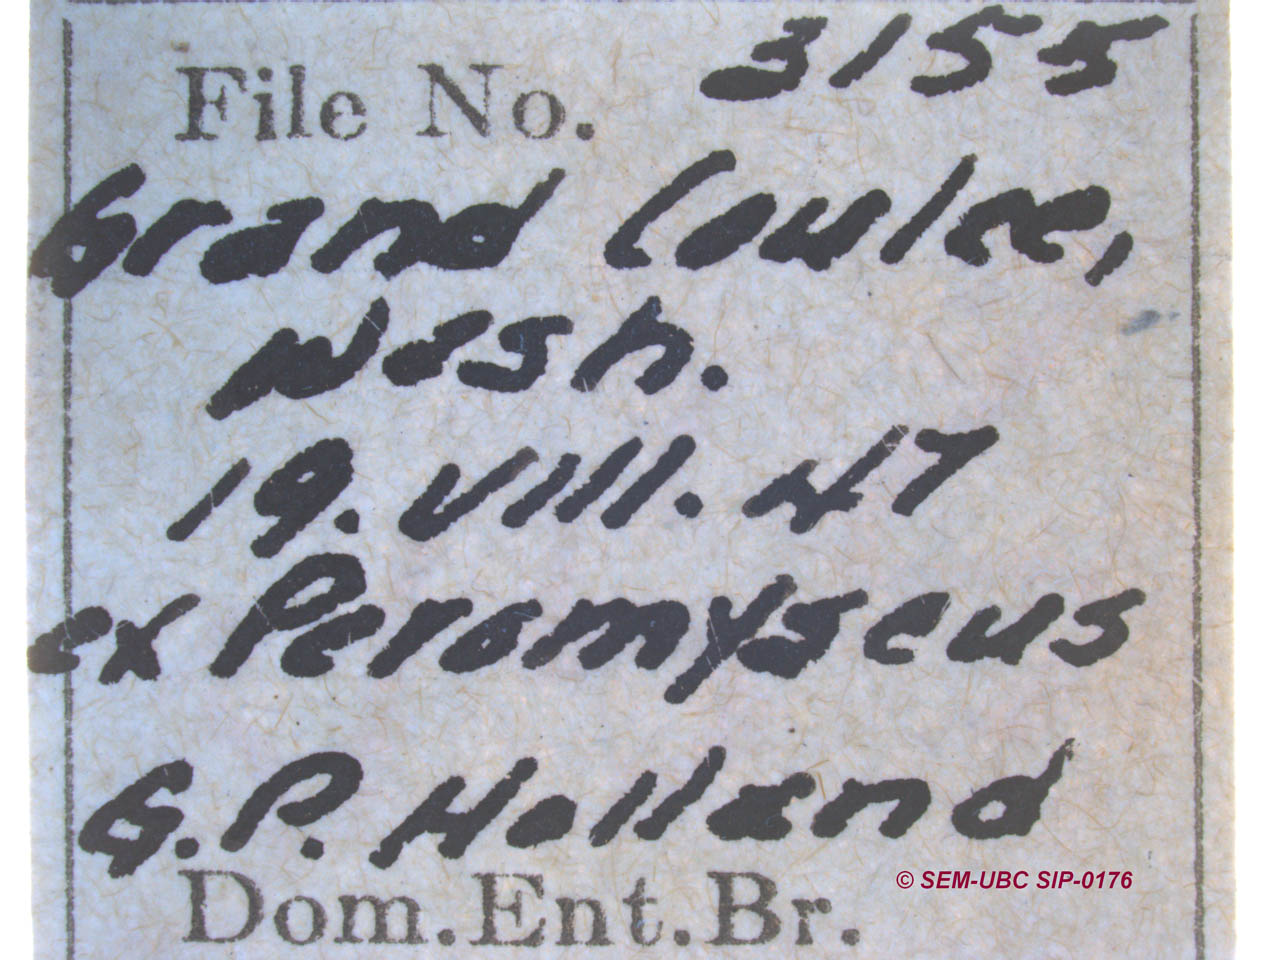 File No. 3155
Grand Coulee,
Wash.
19.VIII.47
ex Peromyscus
G.P. Holland
© SEM-UBC SIP-0176
Dom.Ent.Br.